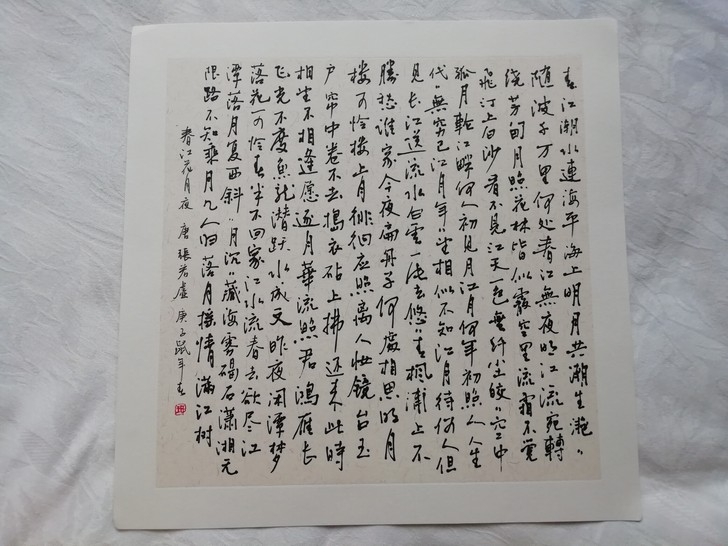 春江潮水連海平海上明月共潮生灔〃
随波千万里何处春江無夜明江流宛轉
绕芳甸月照花林皆似霰空里流霜不觉
飛汀上白沙看不見江天一色無纤尘皎〃空中
孤月轮江畔何人初見月江月何年初照人人生
代〃無穷已江月年〃望相似不知江月待何人但
見长江送流水白雲一片去悠〃青楓浦上不
勝愁谁家今夜扁舟子何處相思明月
楼可怜楼上月徘徊应照离人妆镜台玉
户帘中卷不去搗衣砧上拂还来此時
相望不相逢愿逐月華流照君鸿雁长
飞光不度鱼龍潜跃水成文昨夜闲潭梦
落花可怜春半不回家江水流春去欲尽江
潭落月复西斜〃月沉〃藏海雾碣石瀟湘无
限路不知乘月几人归落月摇情满江树
春江花月夜 唐 張若虛 庚子鼠年春